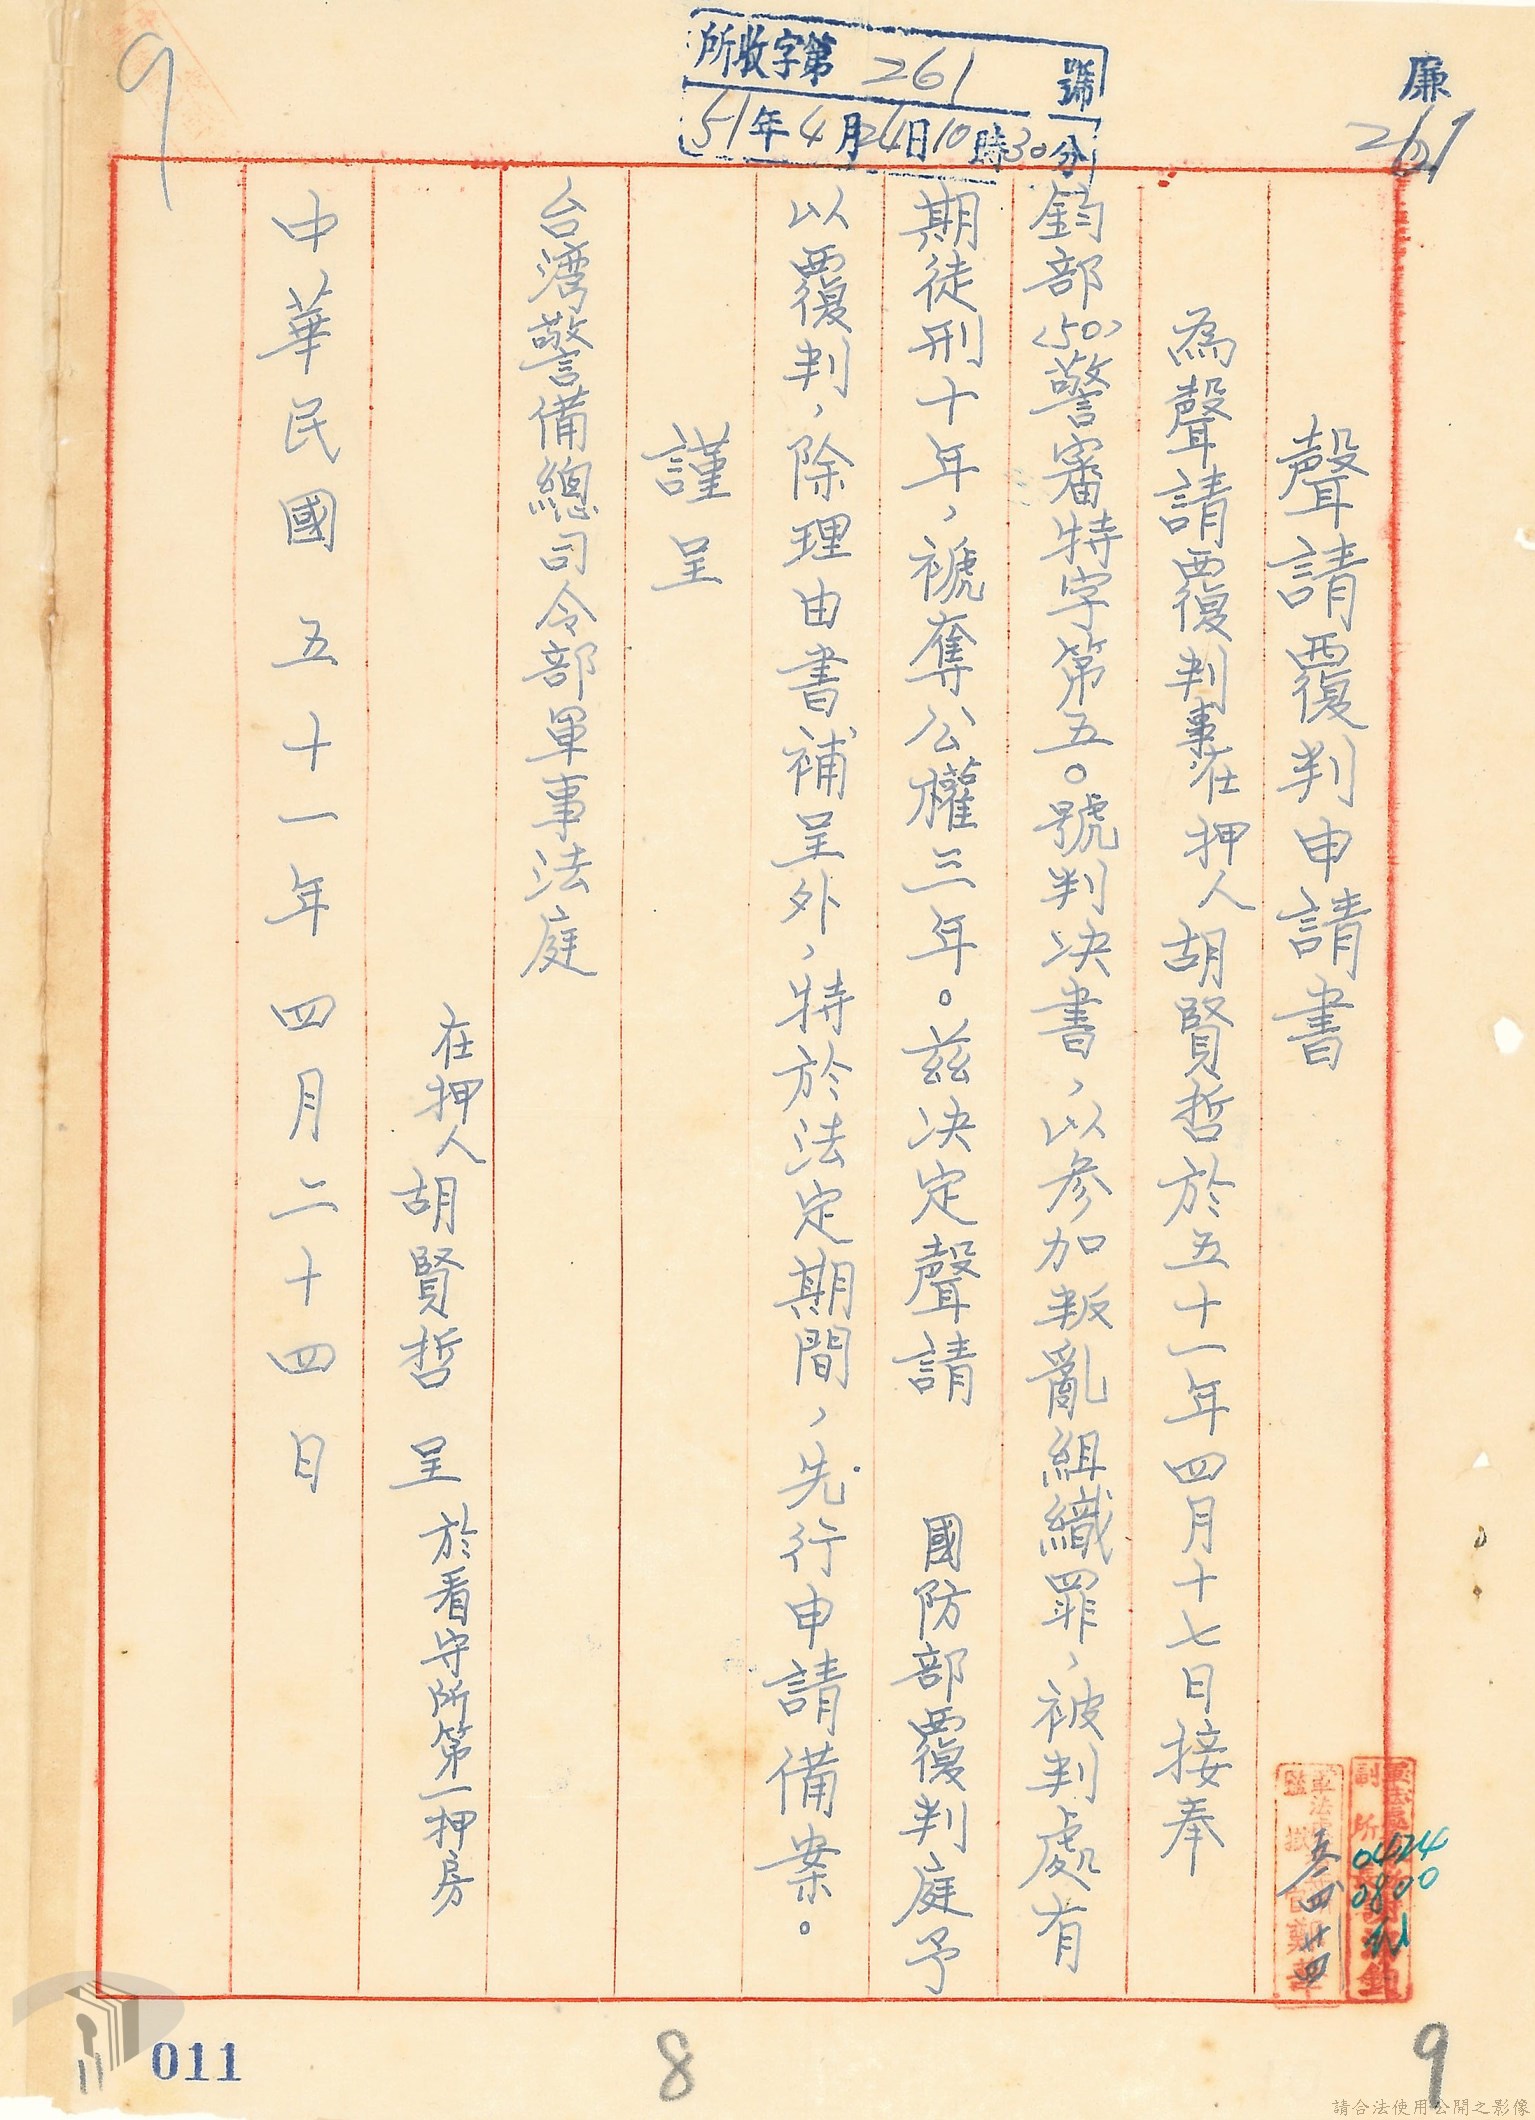 所收字第261號
51年4月24日10時30分
廉
261
9
聲請覆判申請書
為聲請覆判事在押人胡賢哲於五十一年四月十七日接奉
鈞部(50)警審特字第五○號判決書、以參加叛亂組織罪、被判處有
期徒刑十年、褫奪公權三年。茲決定聲請 國防部覆判庭予
以覆判、除理由書補呈外、特於法定期間、先行申請備案。
謹呈
台灣警備總司令部軍事法庭
在押人胡賢哲 呈 於看守所第一押房
中華民國五十一年四月二十四日
0424
0800
011
8
9
請合法使用公開之影像